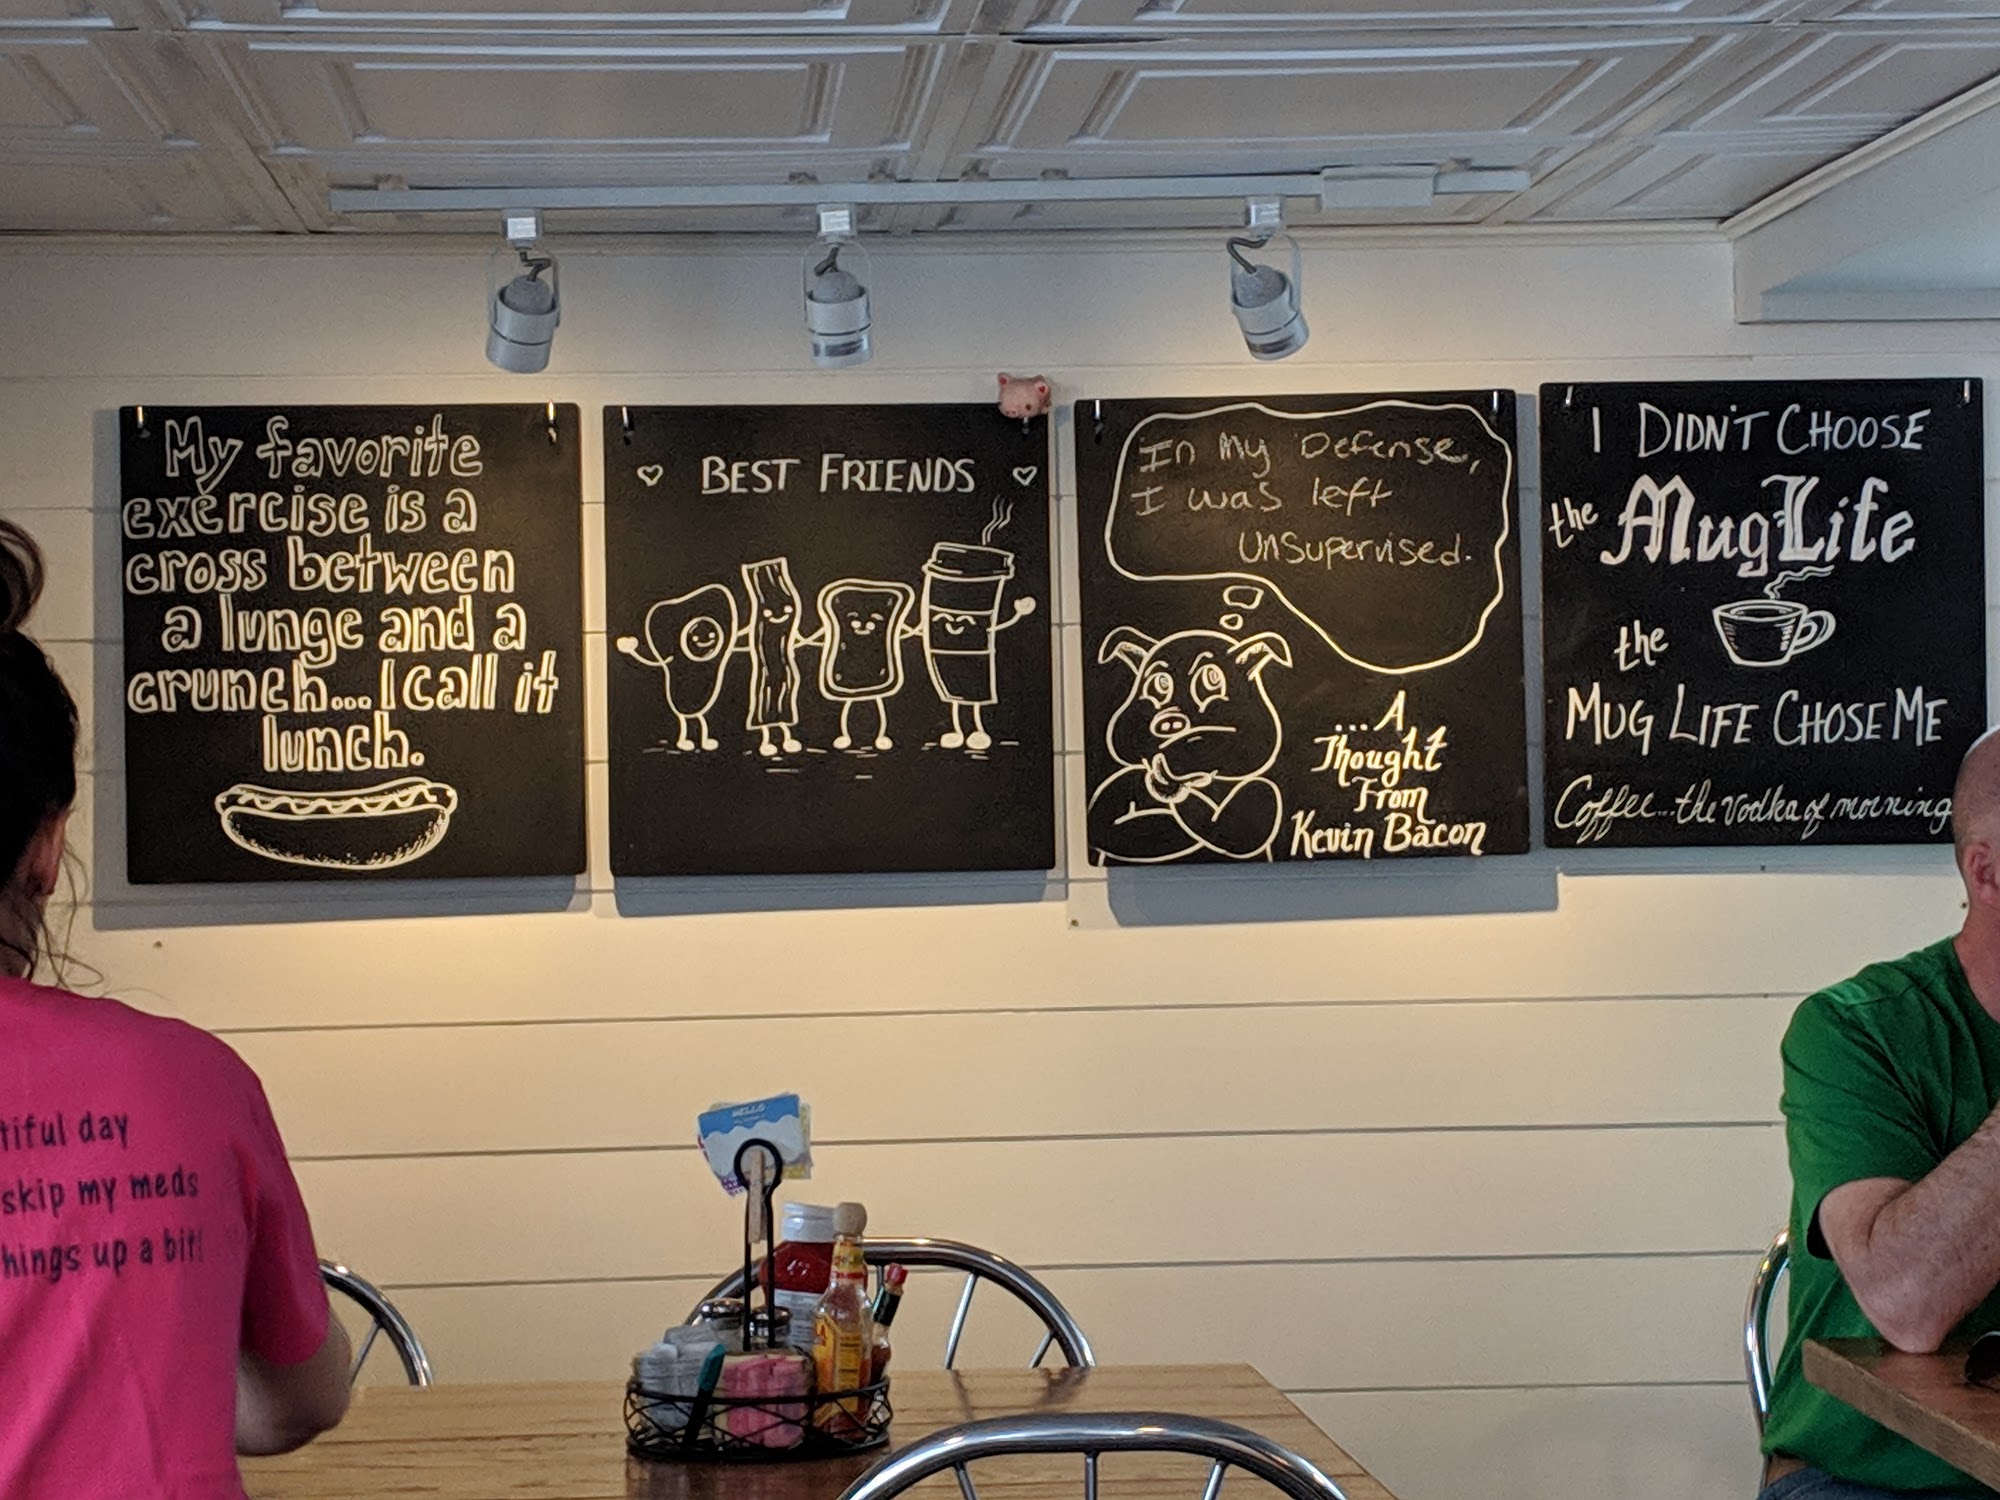 My favorite
exercise is a
cross between
a lunge and a
crunch... I call it
lunch.
BEST FRIENDS
In my Defense,
I was left
unsupervised.
...A
Thought
From
Kevin Bacon
I DIDN'T CHOOSE
the MugLife
the
MUG LIFE CHOSE ME
Coffee...the vodka of morning
tiful day
skip my meds
hings up a bit!
HELLO